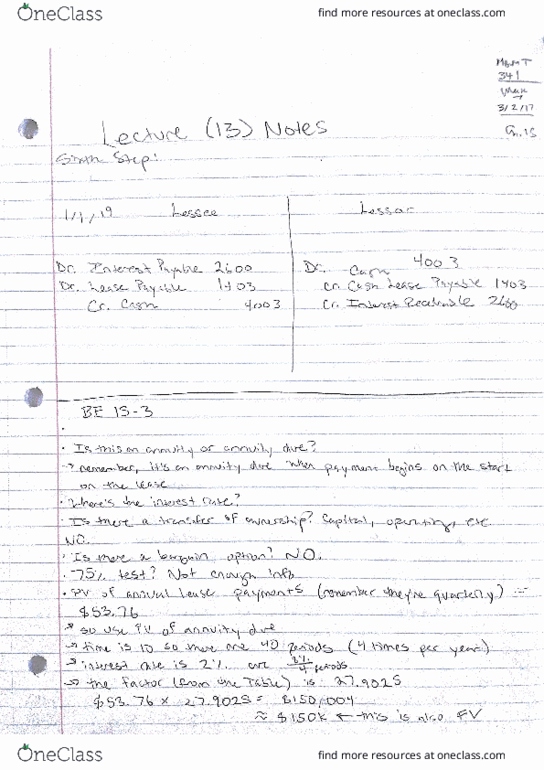 OneClass find more resources at oneclass.com
MGMT
341
3/2/17
Ch.15
Lecture (13) Notes
Sixth Step:
1/1/19 Lessee Lessor
Dr. Interest Payable 2600
Dr. Lease Payable 1403
Cr. Cash 4003
Dr. Cash 4003
Cr. Cash Lease Payable 1403
Cr. Interest Receivable 2600
BE 15-3
· Is this an annuity or annuity due?
→ remember, it's an annuity due when payment begins on the start
on the lease
· Where's the interest rate?
· Is there a transfer of ownership? Capital, operating, etc.
NO.
· Is there a bargain option? NO.
· 75% test? Not enough info
· PV of annual lease payments (remember they're quarterly)
$53.76
→ so use PV of annuity due
→ time is 10 so there are 40 periods (4 times per year)
→ interest rate is 2% or 8%/4 periods
→ the factor (from the Table) is 27.9025
$53.76 × 27.9025 = $150,004
≈ $150K ← this is also FV
OneClass find more resources at oneclass.com